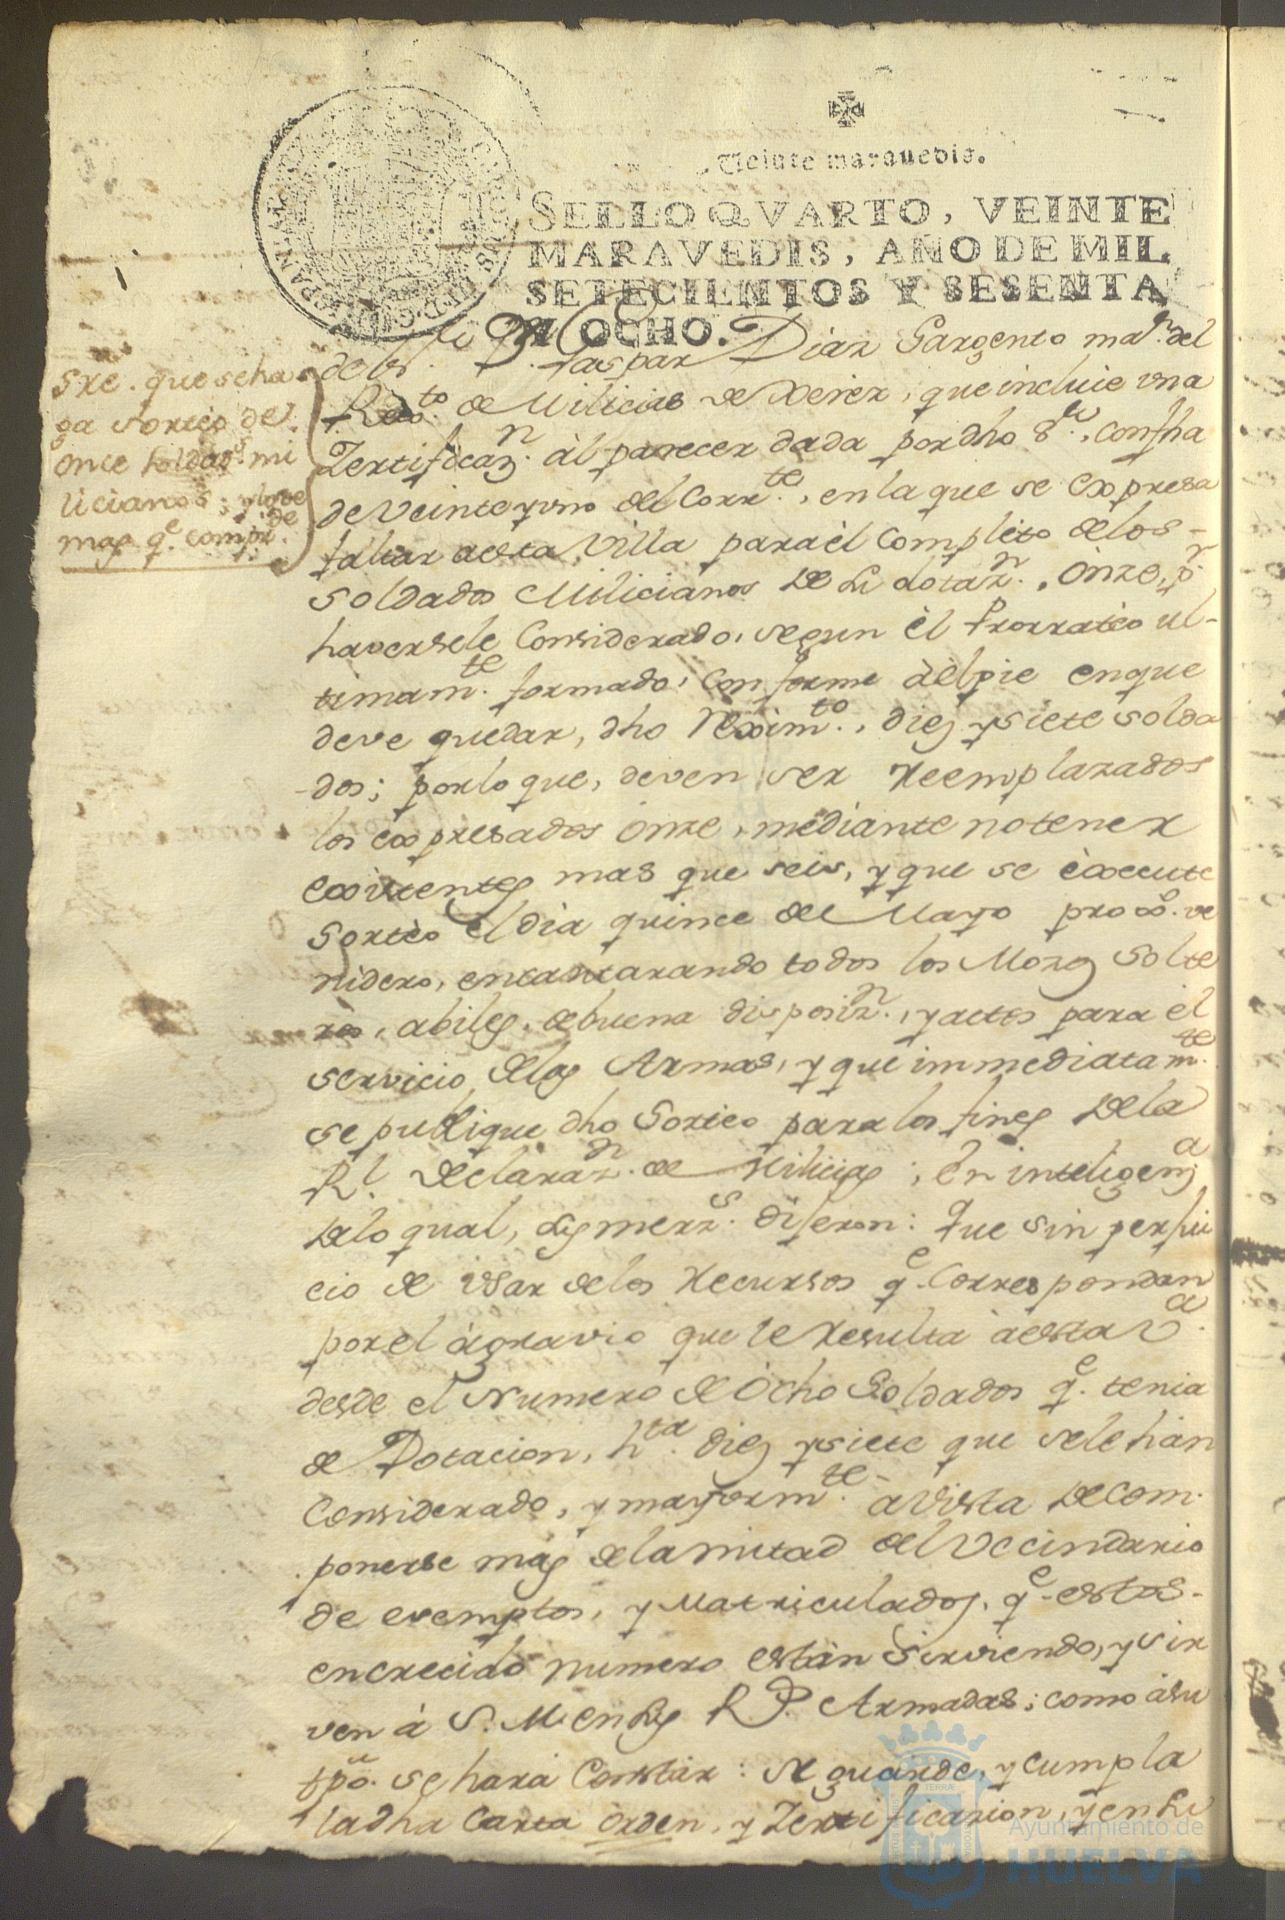 Veinte maravedis.
SELLO QVARTO, VEINTE
MARAVEDIS, AÑO DE MIL
SETECIENTOS Y SESENTA
Y OCHO.
Sre. que se ha
ga sorteo de
once soldads. mi
licianos; y lo de
mas qe. compr.de
D. Gaspar Diaz Sargento mar. del
Regto. de Milicias de Xerez, que incluie una
Zertificazn. àl parecer dada por dho Sr., con fha
de veinte y uno del Corrte., en la que se expresa
faltar a esta Villa para èl Completo de los
soldados Milicianos de su dotazn., Onze, pr.
haversele Considerado, segun èl Prorratèo ul-
timamte. formado, conforme àl pie en que
deve quedar, dho Reximto., diez y siete solda
dos; por lo que, deven ser reemplazados
los expresados onze, mediante no tener
existentes mas que seis, y que se èxecute
sortèo el dia quince de Mayo proxo. ve
nidero, encantarando todos los Mozos solte
ros, abiles, de buena disposizn., y actos para èl
servicio de las Armas, y que immediatamte.
se publique dho Sorteo para los fines de la
Rl. Declarazn. de Milicias; En inteligenza
de lo qual, sus merzs. dijeron: Que sin perjui
cio de usar de los recursos qe. Correspondan
por el àgravio que le resulta à esta Va.
desde el Numero de Ocho Soldados qe. tenia
de Dotacion, hta. diez y siete que se le hàn
Considerado, y mayormte. a vista de com-
ponerse mas de la mitad del Vecindario
de exemptos, y Matriculados, qe. estos
en crecido numero estàn sirviendo, y sir
ven à S. M. en sus Rs. Armadas; como à su
tpo. se harà Constar: Se guarde, y cumpla
la dha Carta orden, y Zertificazion, y en su
Ayuntamiento de
HUELVA